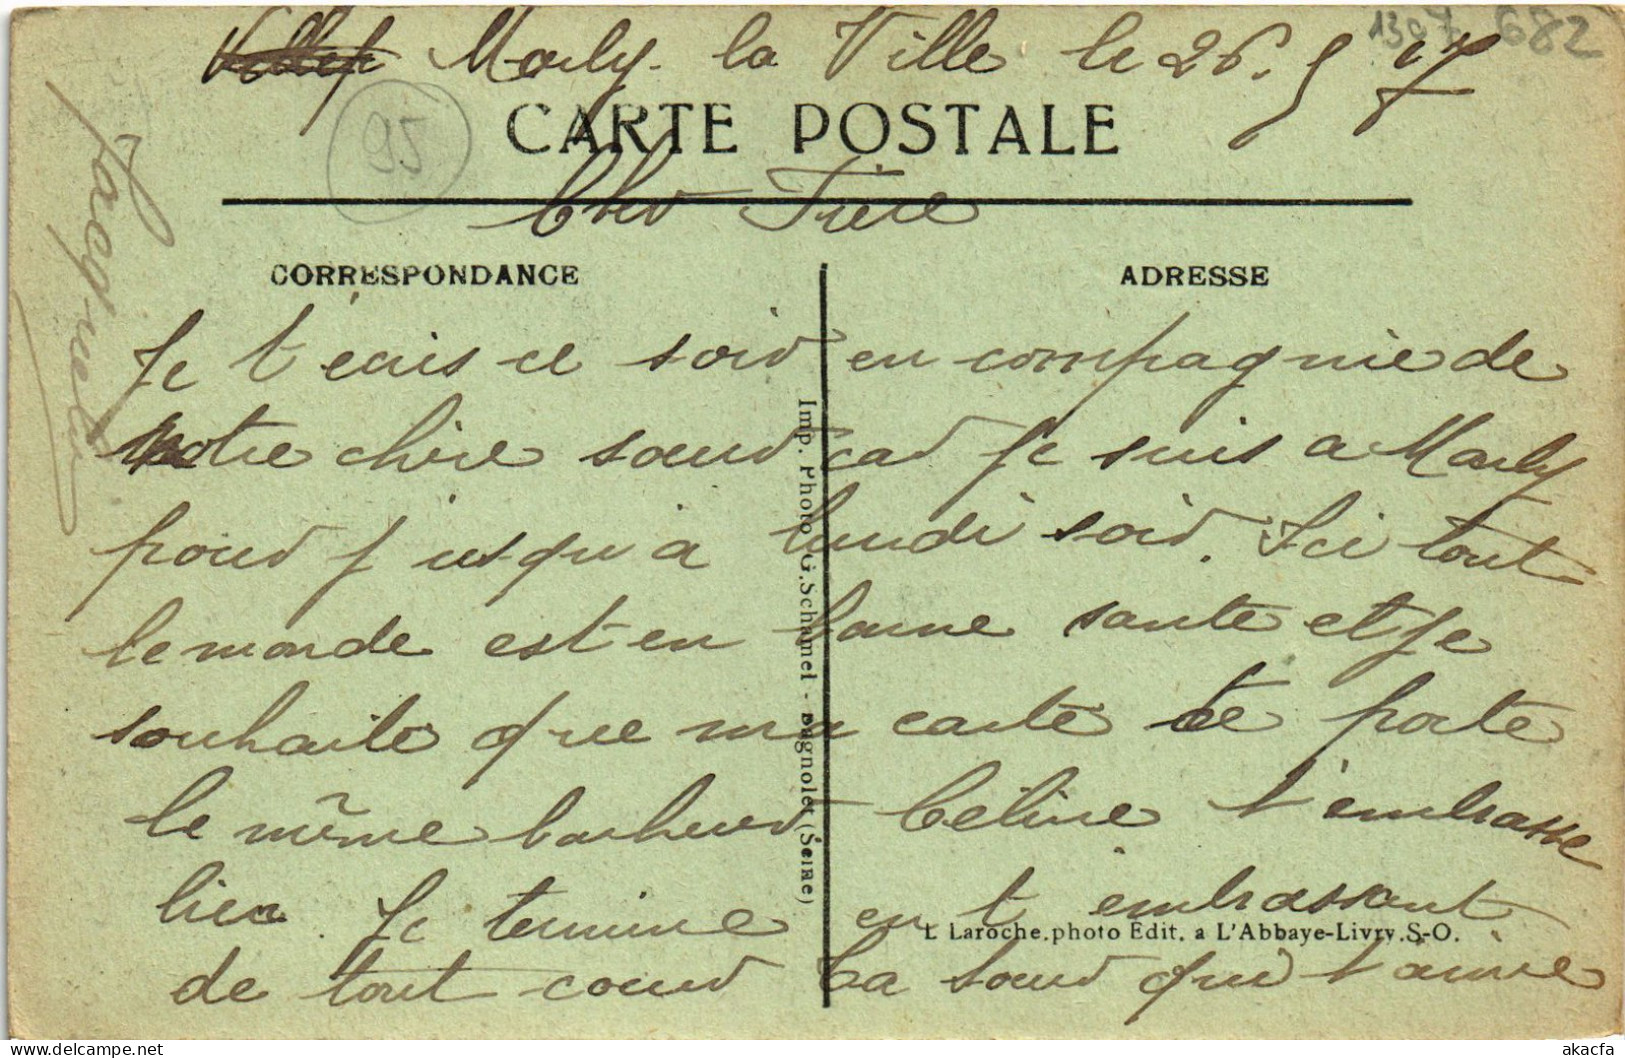 Marly la Ville le 26.5.17
1307 682
95
CARTE POSTALE
Cher Frère
CORRESPONDANCE
ADRESSE
Je t'ecris ce soir en compagnie de
notre chère soeur car je suis a Marly
pour jusqu'a lundi soir. Ici tout
le monde est en bonne sante et je
souhaite que ma carte te porte
le même bonheur Céline t'embrasse
bien. Je termine en t'embrassant
de tout coeur ta soeur qui t'aime
Jacqueline
Imp. Photo G. Schamel - Bagnolet (Seine)
L Laroche.photo Edit. a L'Abbaye-Livry.S-O.
akacfa